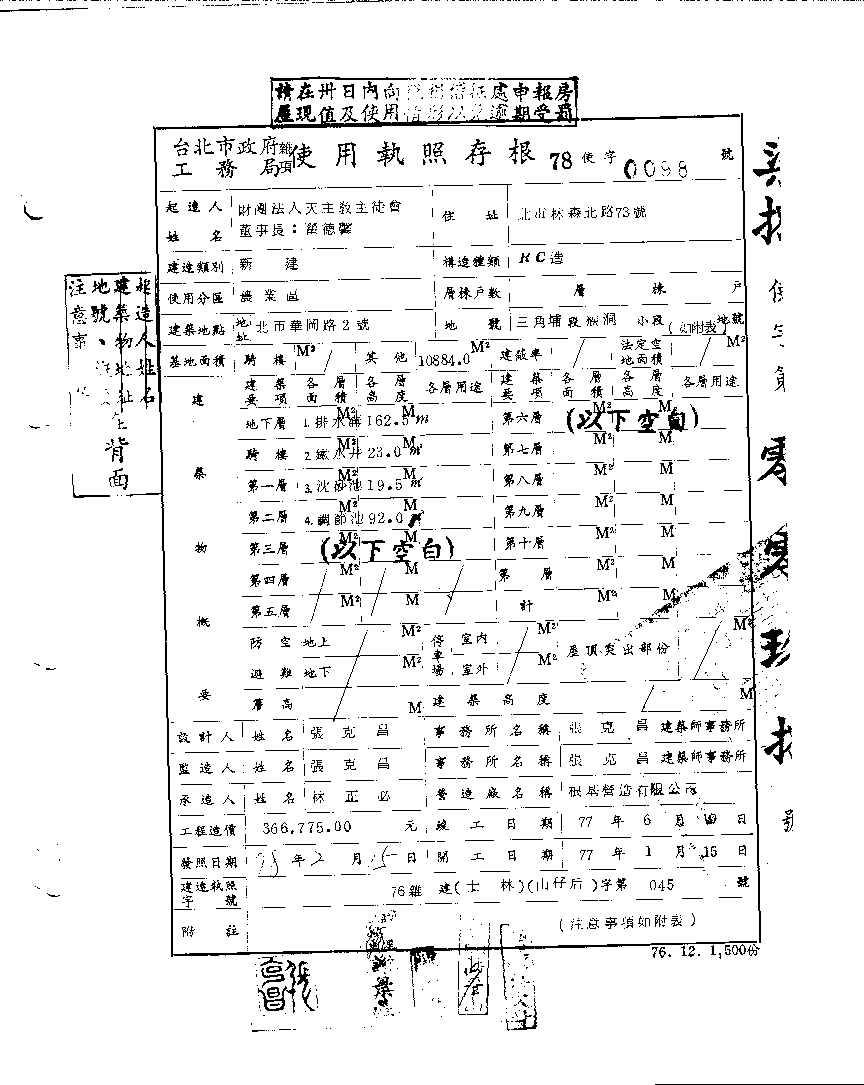 請在卅日內向 處申報房
屋現值及使用情形 逾期受罰
台北市政府雜項使用執照存根 78 使字 0098 號
工務局
起造人姓名 財團法人天主教主徒會
董事長:
住址 北市林森北路73號
建造類別 新建 構造種類 RC造
使用分區 農業區 層棟戶數 層 棟 戶
建築地點 地址 北市華岡路2號 地號 三角埔段猴洞 小段 (如附表) 地號
基地面積 騎樓 M² 其他 10884.0 M² 建蔽率 法定空地面積 M²
建築物概要
建築要項 各層面積 各層高度 各層用途 建築要項 各層面積 各層高度 各層用途
地下層 1.排水溝 162.5 m M² M 第六層 (以下空白) M² M
騎樓 2. 水井 23.0 m M² M 第七層 M² M
第一層 3.沈砂池 19.5 m M² M 第八層 M² M
第二層 4.調節池 92.0 M² M 第九層 M² M
第三層 (以下空白) M² M 第十層 M² M
第四層 M² M 第 層 M² M
第五層 M² M 計 M² M
防空避難 地上 M² 停車場 室內 M² 屋頂突出部份 M²
地下 M² 室外 M²
簷高 M 建築高度 M
設計人 姓名 張克昌 事務所名稱 張克昌建築師事務所
監造人 姓名 張克昌 事務所名稱 張克昌建築師事務所
承造人 姓名 林正必 營造廠名稱 根基營造有限公司
工程造價 366,775.00 元 竣工日期 77年6月 日
發照日期 78年2月15日 開工日期 77年1月15日
建造執照字號 76雜建(士林)(山仔后)字第 045 號
附註 (注意事項如附表)
76.12.1,500份
起造人姓名
建築物地址
地號、
注意事
背面